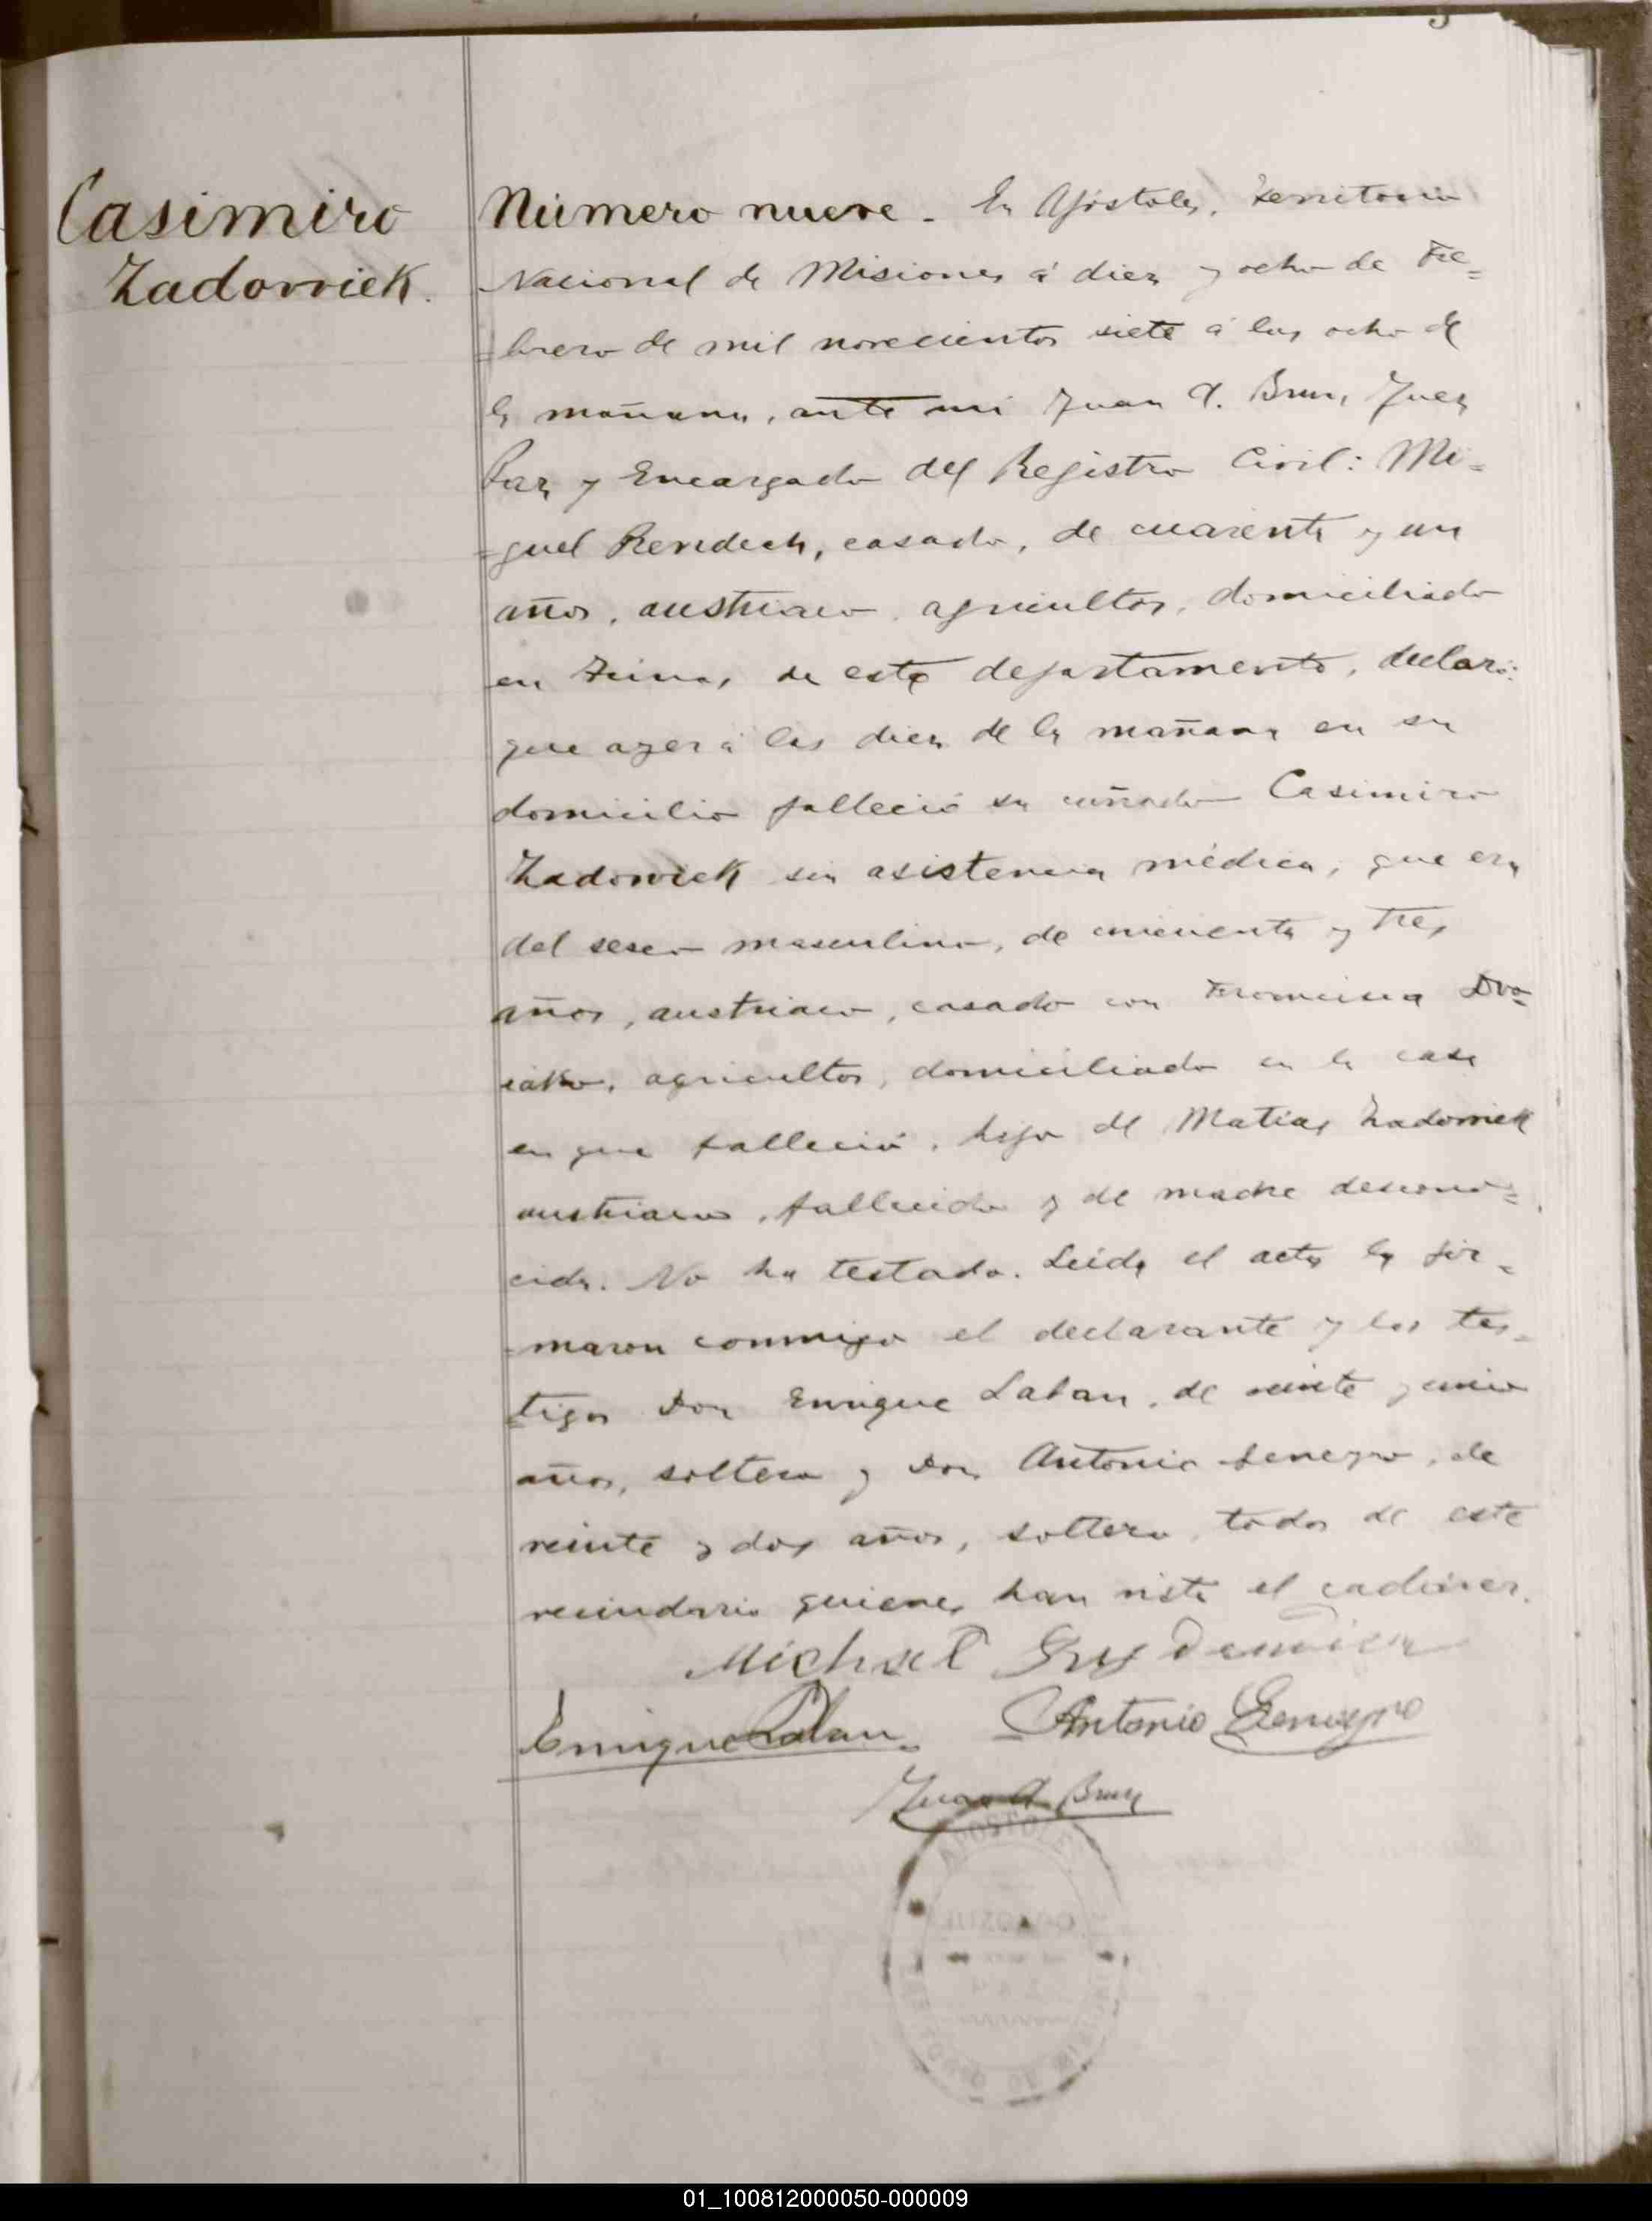 Casimiro
Zadorviek.
Número nueve. En Apóstoles, Territorio
Nacional de Misiones á diez y ocho de Fe=
=brero de mil novecientos siete á las ocho de
la mañana, ante mi Juan A. Brun, Juez
Paz y Encargado del Registro Civil: Mi=
=guel casado, de cuarenta y un
años, austriaco, agricultor, domiciliado
en de este departamento, declaró:
que ayer á las diez de la mañana en su
domicilio falleció su cuñado Casimiro
Zadorviek sin asistencia médica, que era
del sexo masculino, de cincuenta y tres
años, austriaco, casado con Francisca
agricultor, domiciliado en la casa
en que falleció, hijo de Matias Zadorviek
austriaco, fallecido y de madre descono=
cida. No ha testado. Leida el acta la fir=
=maron conmigo el declarante y los tes=
tigos Don Enrique Laban, de veinte y cinco
años, soltero y Don Antonio de
veinte y dos años, soltero, todos de este
vecindario quienes han visto el cadáver.
Michael
Enrique Laban. Antonio
Juan A Brun
01_100812000050-000009